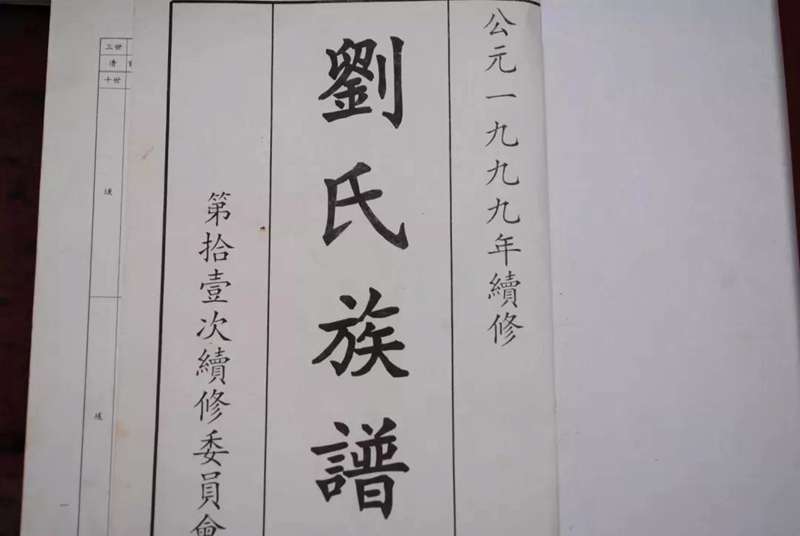 公元一九九九年續修
劉氏族譜
第拾壹次續修委員會
三世
清
十世